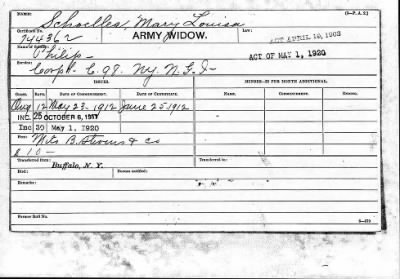 (3-P. A. S.)
NAME: Schoelles, Mary Louisa
Certificate No. 744362 ARMY WIDOW. Law: ACT APRIL 19, 1908
Name of Soldier: Philip ACT OF MAY 1, 1920
Service: Corpl. C. 98. Ny. N. G. I
ISSUES. MINORS—$2 PER MONTH ADDITIONAL.
CLASS. RATE. DATE OF COMMENCEMENT. DATE OF CERTIFICATE. NAME. COMMENCEMENT. ENDING.
Orig 12 May 23-1912 June 25-1912
INC. 25 OCTOBER 6, 1917
Inc 30 May 1, 1920
Fees: Milo B. Stevens & Co
$ 10 —
Transferred from: Transferred to:
Buffalo, N. Y.
Died: Bureau notified:
Remarks:
Former Roll No.